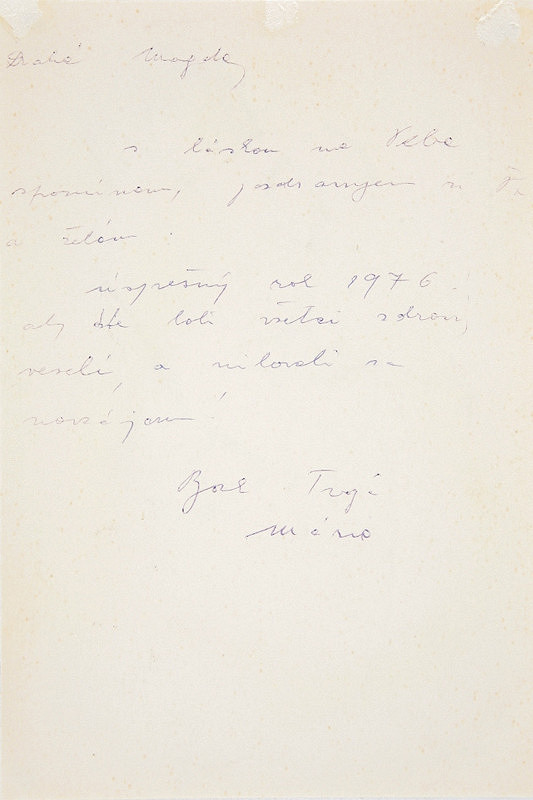 Drahá Magda,
s láskou na Teba
spomínam, pozdravujem a
a želám
úspešný rok 1976!
aby ste boli všetci zdraví,
veselí a milovali sa
navzájom!
Tvoja